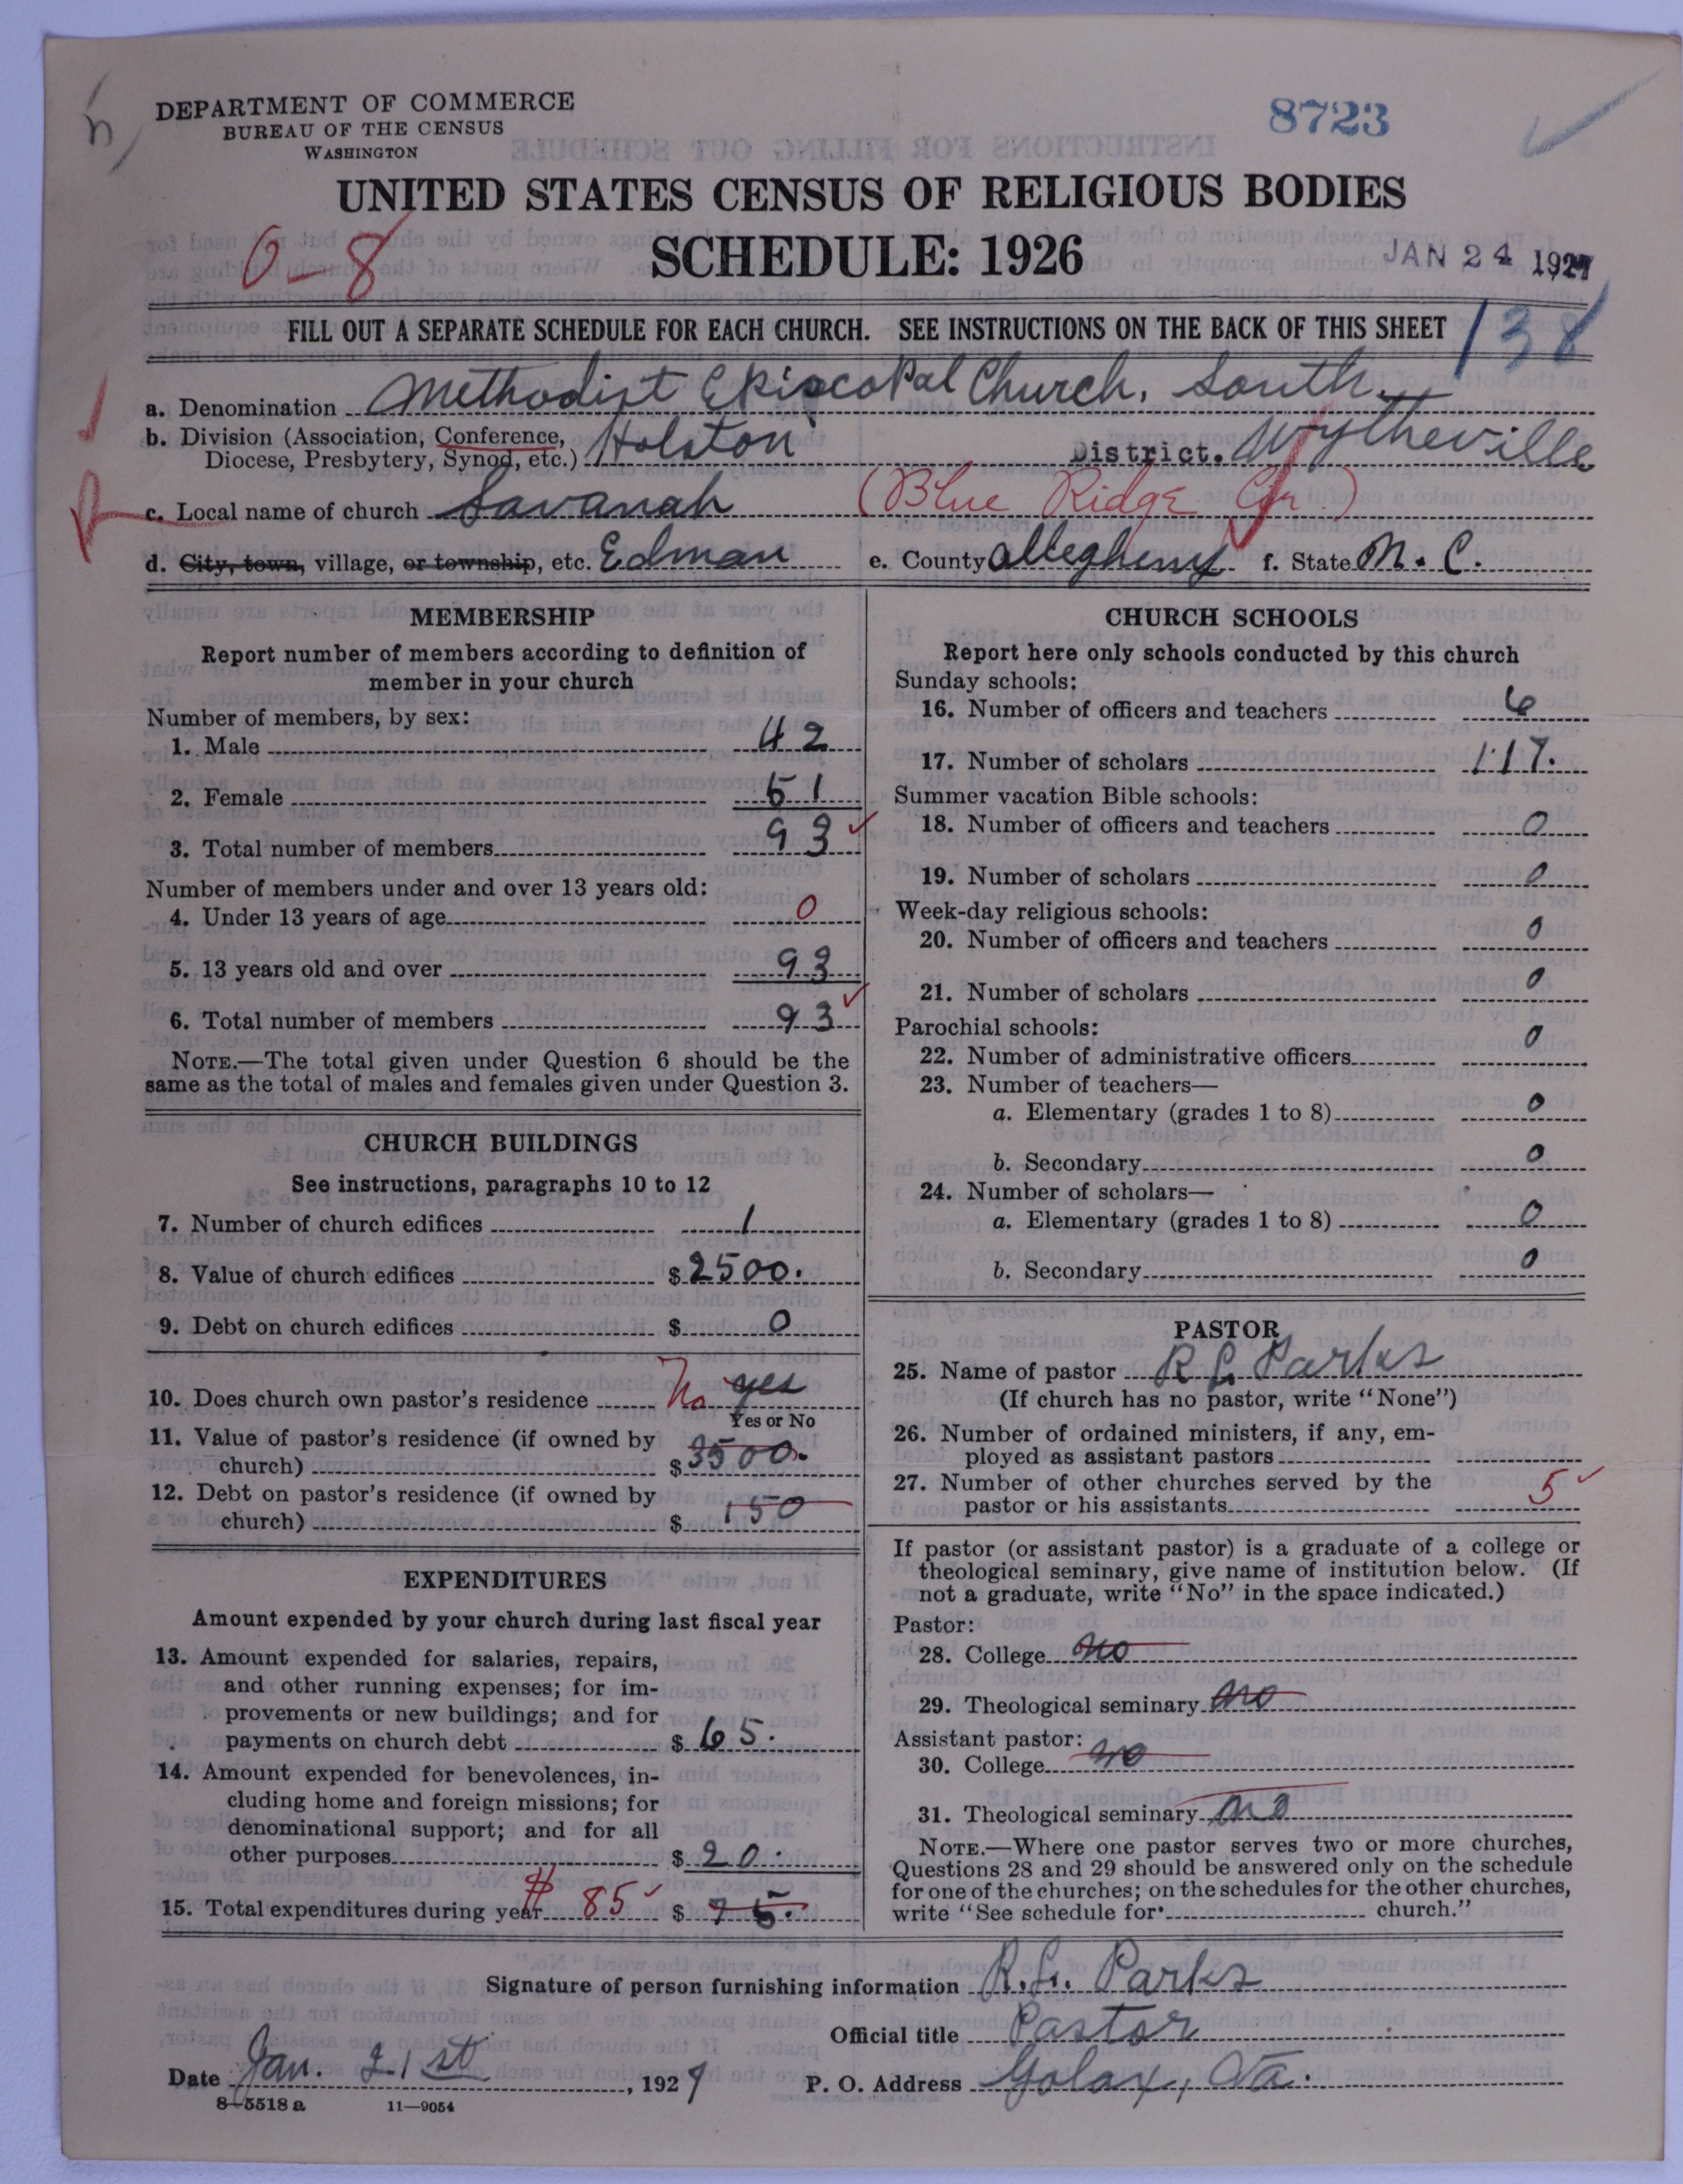 DEPARTMENT OF COMMERCE
BUREAU OF THE CENSUS
WASHINGTON
8723
UNITED STATES CENSUS OF RELIGIOUS BODIES
SCHEDULE: 1926
0-8
JAN 24 1927
FILL OUT A SEPARATE SCHEDULE FOR EACH CHURCH. SEE INSTRUCTIONS ON THE BACK OF THIS SHEET
138
a. Denomination Methodist Episcopal Church, South
b. Division (Association, Conference, Diocese, Presbytery, Synod, etc.) Holston District. Wytheville
c. Local name of church Savanah (Blue Ridge Cir.)
d. City, town, village, or township, etc. Edman e. County Allegheny f. State N. C.
MEMBERSHIP
Report number of members according to definition of
member in your church
Number of members, by sex:
1. Male 42
2. Female 51
3. Total number of members 93
Number of members under and over 13 years old:
4. Under 13 years of age 0
5. 13 years old and over 93
6. Total number of members 93
NOTE.—The total given under Question 6 should be the
same as the total of males and females given under Question 3.
CHURCH BUILDINGS
See instructions, paragraphs 10 to 12
7. Number of church edifices 1
8. Value of church edifices $ 2500.
9. Debt on church edifices $ 0
10. Does church own pastor's residence No yes
Yes or No
11. Value of pastor's residence (if owned by
church) $ 3500.
12. Debt on pastor's residence (if owned by
church) $ 150
EXPENDITURES
Amount expended by your church during last fiscal year
13. Amount expended for salaries, repairs,
and other running expenses; for im-
provements or new buildings; and for
payments on church debt $ 65.
14. Amount expended for benevolences, in-
cluding home and foreign missions; for
denominational support; and for all
other purposes $ 20.
15. Total expenditures during year $ 85 $ 75.
CHURCH SCHOOLS
Report here only schools conducted by this church
Sunday schools:
16. Number of officers and teachers 6
17. Number of scholars 117.
Summer vacation Bible schools:
18. Number of officers and teachers 0
19. Number of scholars 0
Week-day religious schools:
20. Number of officers and teachers 0
21. Number of scholars 0
Parochial schools:
22. Number of administrative officers 0
23. Number of teachers—
a. Elementary (grades 1 to 8) 0
b. Secondary 0
24. Number of scholars—
a. Elementary (grades 1 to 8) 0
b. Secondary 0
PASTOR
25. Name of pastor R L Parks
(If church has no pastor, write "None")
26. Number of ordained ministers, if any, em-
ployed as assistant pastors
27. Number of other churches served by the
pastor or his assistants 5
If pastor (or assistant pastor) is a graduate of a college or
theological seminary, give name of institution below. (If
not a graduate, write "No" in the space indicated.)
Pastor:
28. College no
29. Theological seminary no
Assistant pastor:
30. College no
31. Theological seminary no
NOTE.—Where one pastor serves two or more churches,
Questions 28 and 29 should be answered only on the schedule
for one of the churches; on the schedules for the other churches,
write "See schedule for church."
Signature of person furnishing information R. L. Parks
Official title Pastor
Date Jan. 21st, 1927 P. O. Address Galax, Va.
8-5518 a 11-9054